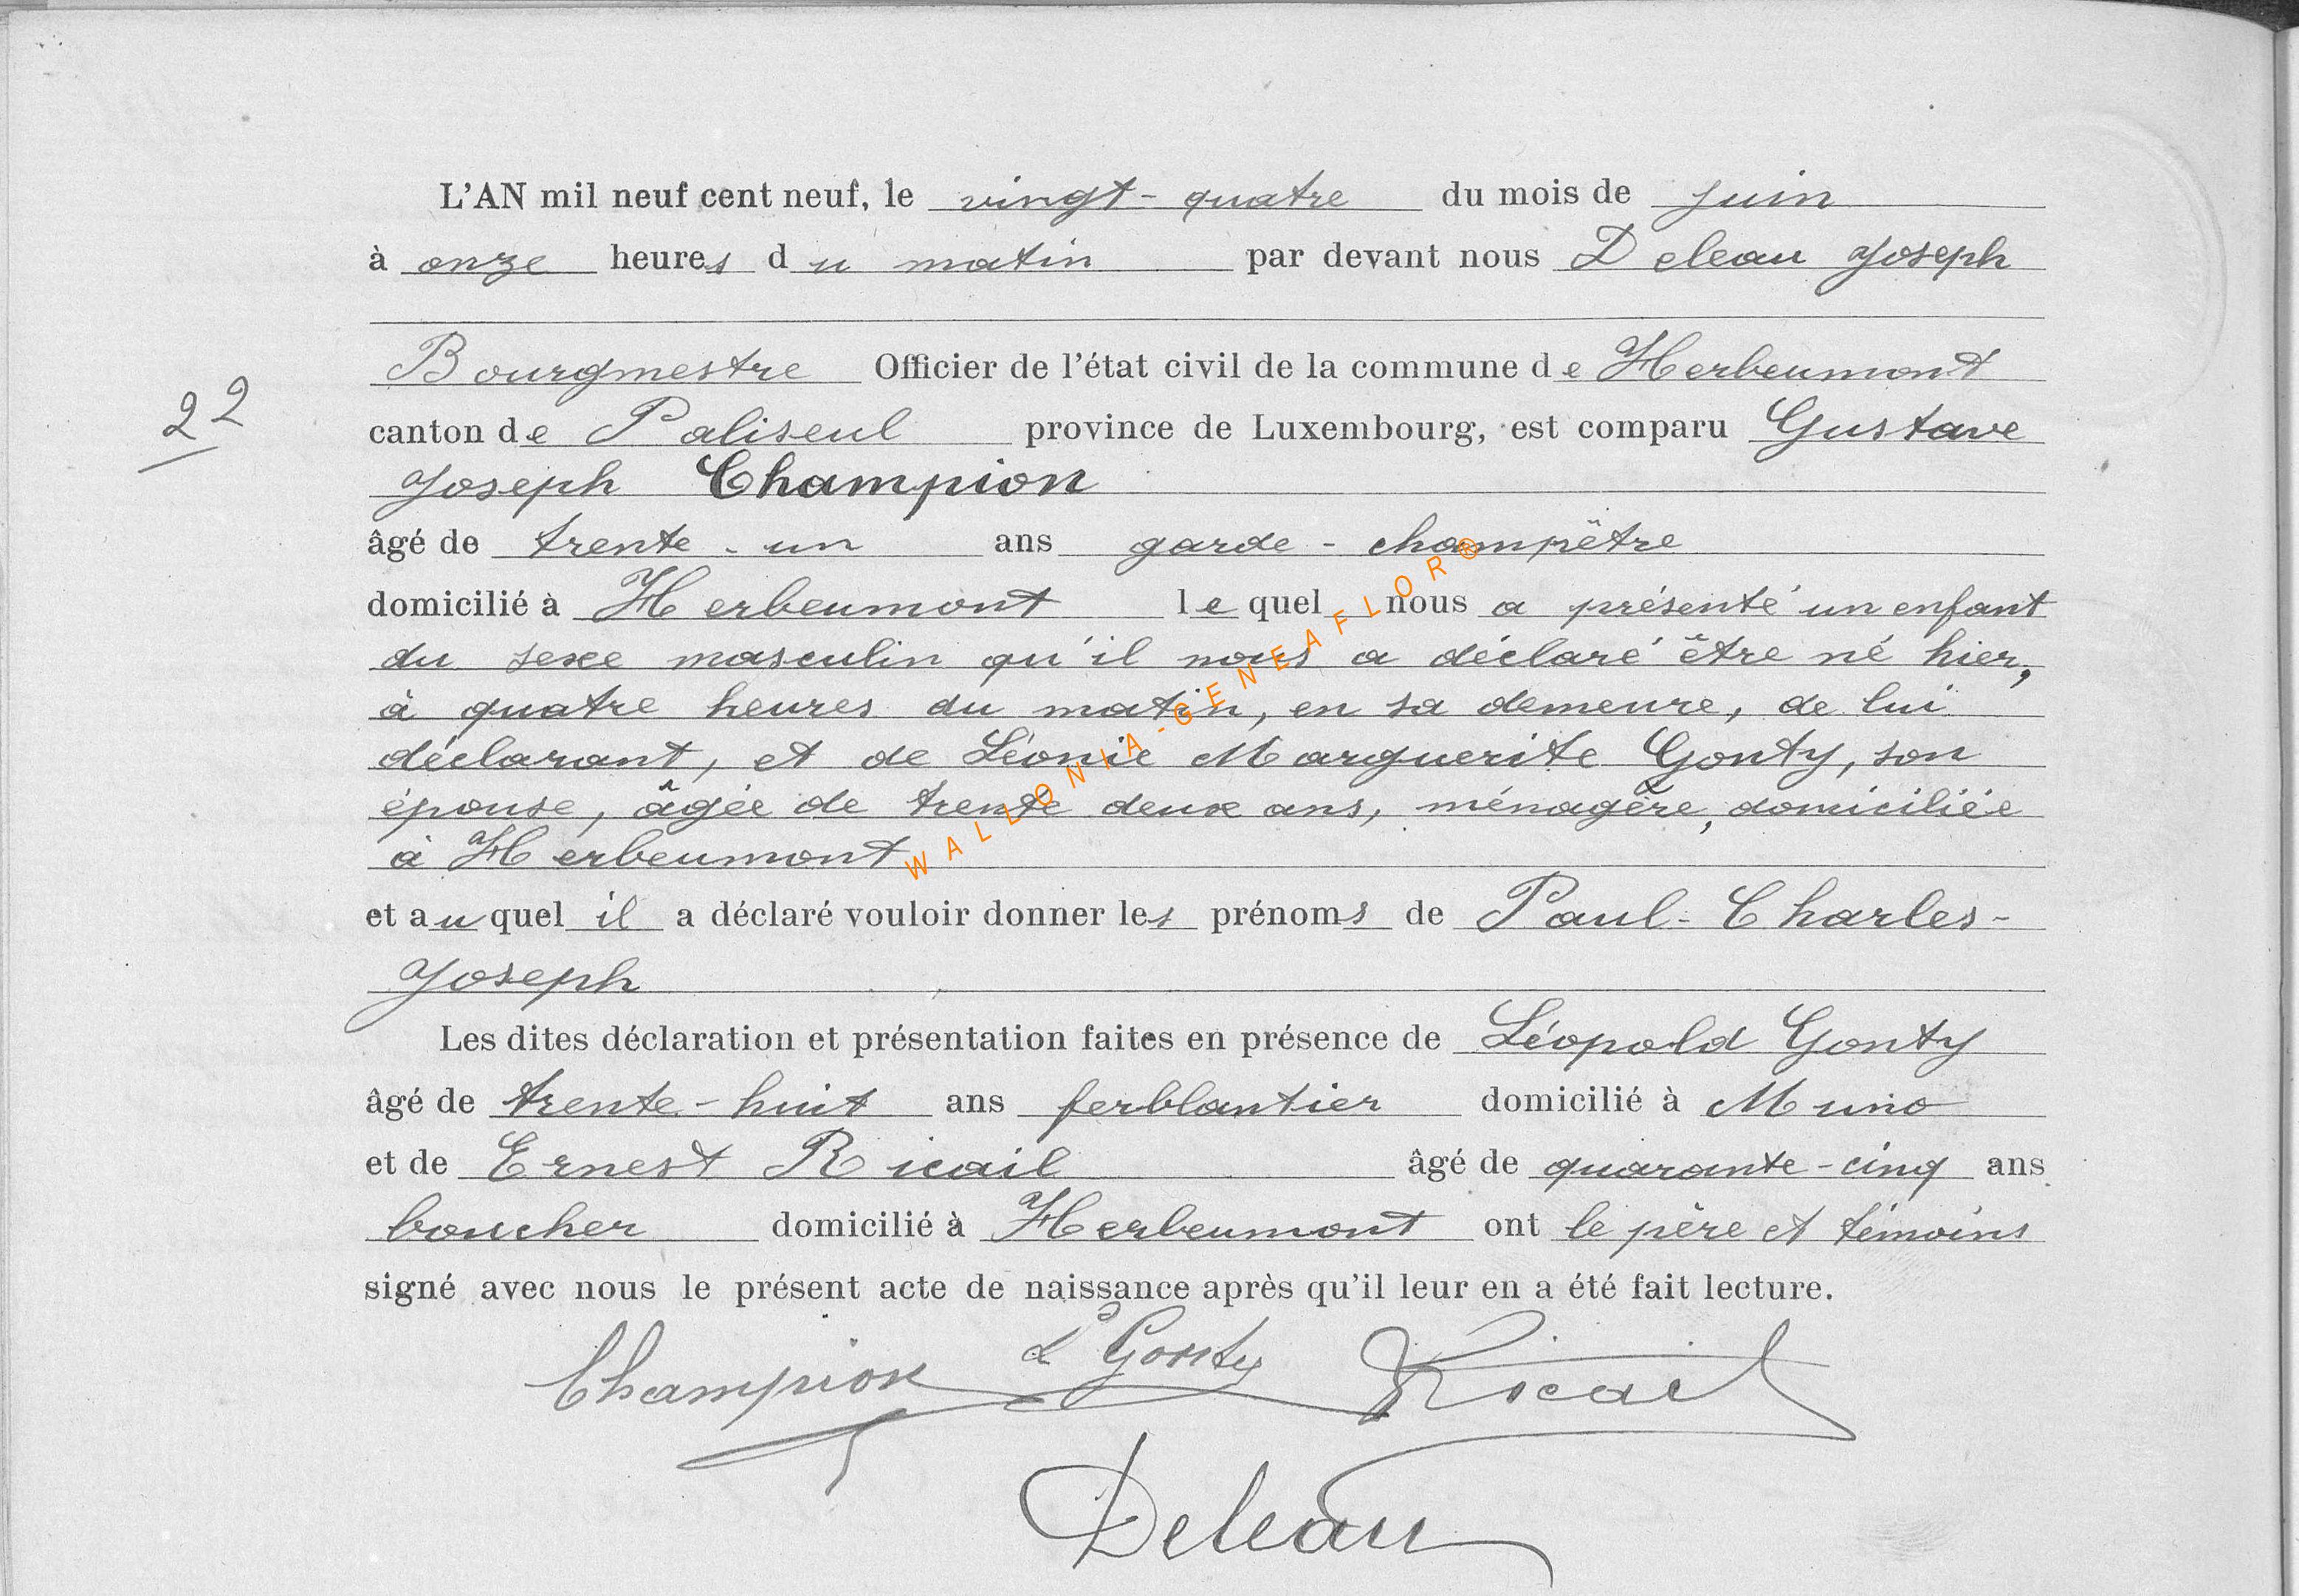 L'AN mil neuf cent neuf, le vingt-quatre du mois de Juin
à onze heures du matin par devant nous Deleau Joseph
Bourgmestre Officier de l'état civil de la commune de Herbeumont
22
canton de Paliseul province de Luxembourg, est comparu Gustave
Joseph Champion
âgé de trente-un ans garde-champêtre
domicilié à Herbeumont lequel nous a présenté un enfant
du sexe masculin qu'il nous a déclaré être né hier,
à quatre heures du matin, en sa demeure, de lui
déclarant, et de Léonie Marguerite Gonty, son
épouse, âgée de trente deux ans, ménagère, domiciliée
à Herbeumont
WALLONIA-GENEAFLOR®
et auquel il a déclaré vouloir donner les prénoms de Paul-Charles-
Joseph
Les dites déclaration et présentation faites en présence de Léopold Gonty
âgé de trente-huit ans ferblantier domicilié à Muno
et de Ernest Ricail âgé de quarante-cinq ans
boucher domicilié à Herbeumont ont le père et témoins
signé avec nous le présent acte de naissance après qu'il leur en a été fait lecture.
Champion Ld Gonty Ricail
Deleau